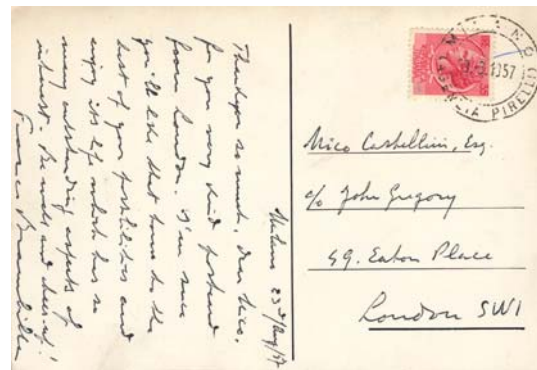 Milano 23rd/Aug/57
Thank you so much, dear Nico,
for your very kind postcard
from London. I'm sure
you'll like that town to the
best of your possibilities and
enjoy its life which has so
many outstanding aspects of
interest. Be well and dees-oj!
Franco Brambilla
MILANO
1957
AGENZIA PIRELLI
Nico Castellini, Esq.
c/o John Gregory
59. Eaton Place
London SW1